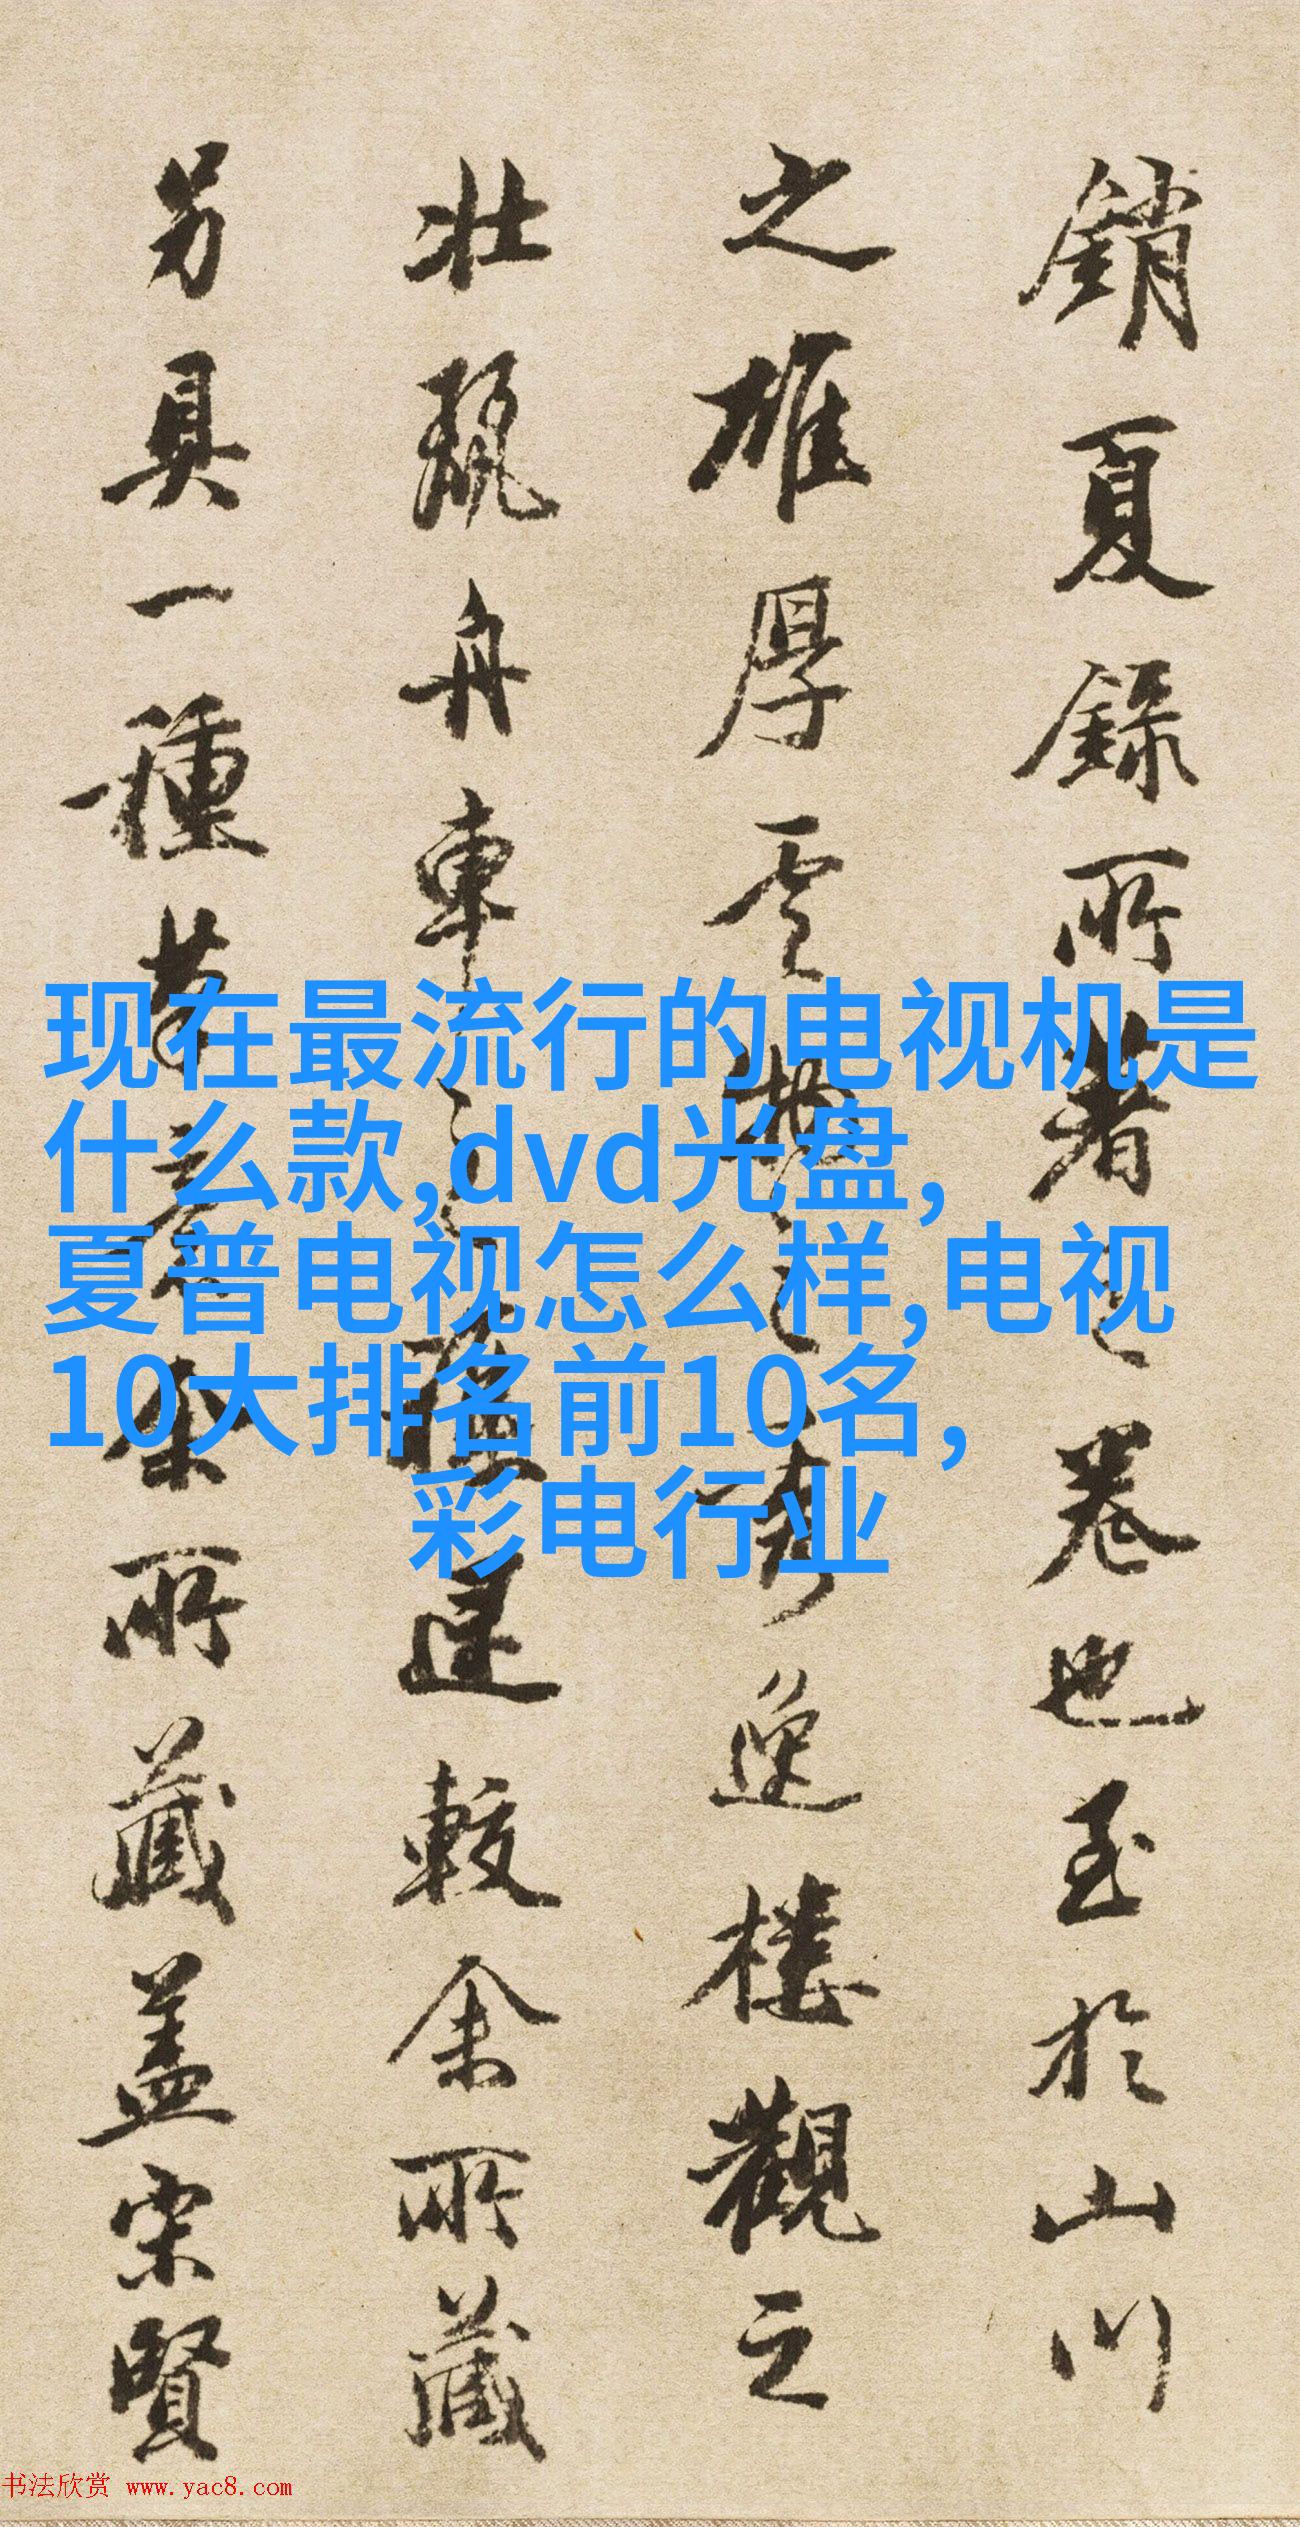 銷夏錄所著之卷也至於山川
之雄厚雲物之秀逸樓觀之
壯麗舟車之
較余所藏
另具一種
余所藏蓋宋賢
现在最流行的电视机是
什么款,dvd光盘,
夏普电视怎么样,电视
10大排名前10名,
彩电行业
书法欣赏 www.yac8.com